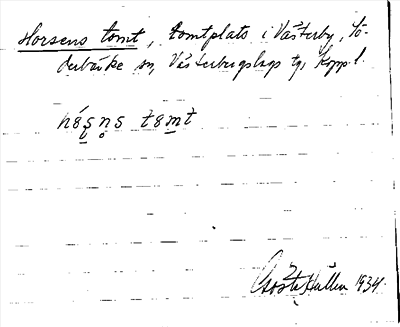 Horsens tomt, tomtplats i Västerby, Sö-
derbärke sn, Västerbergslags tg, Kopp. l.
tomt
Gösta Hallén 1934.